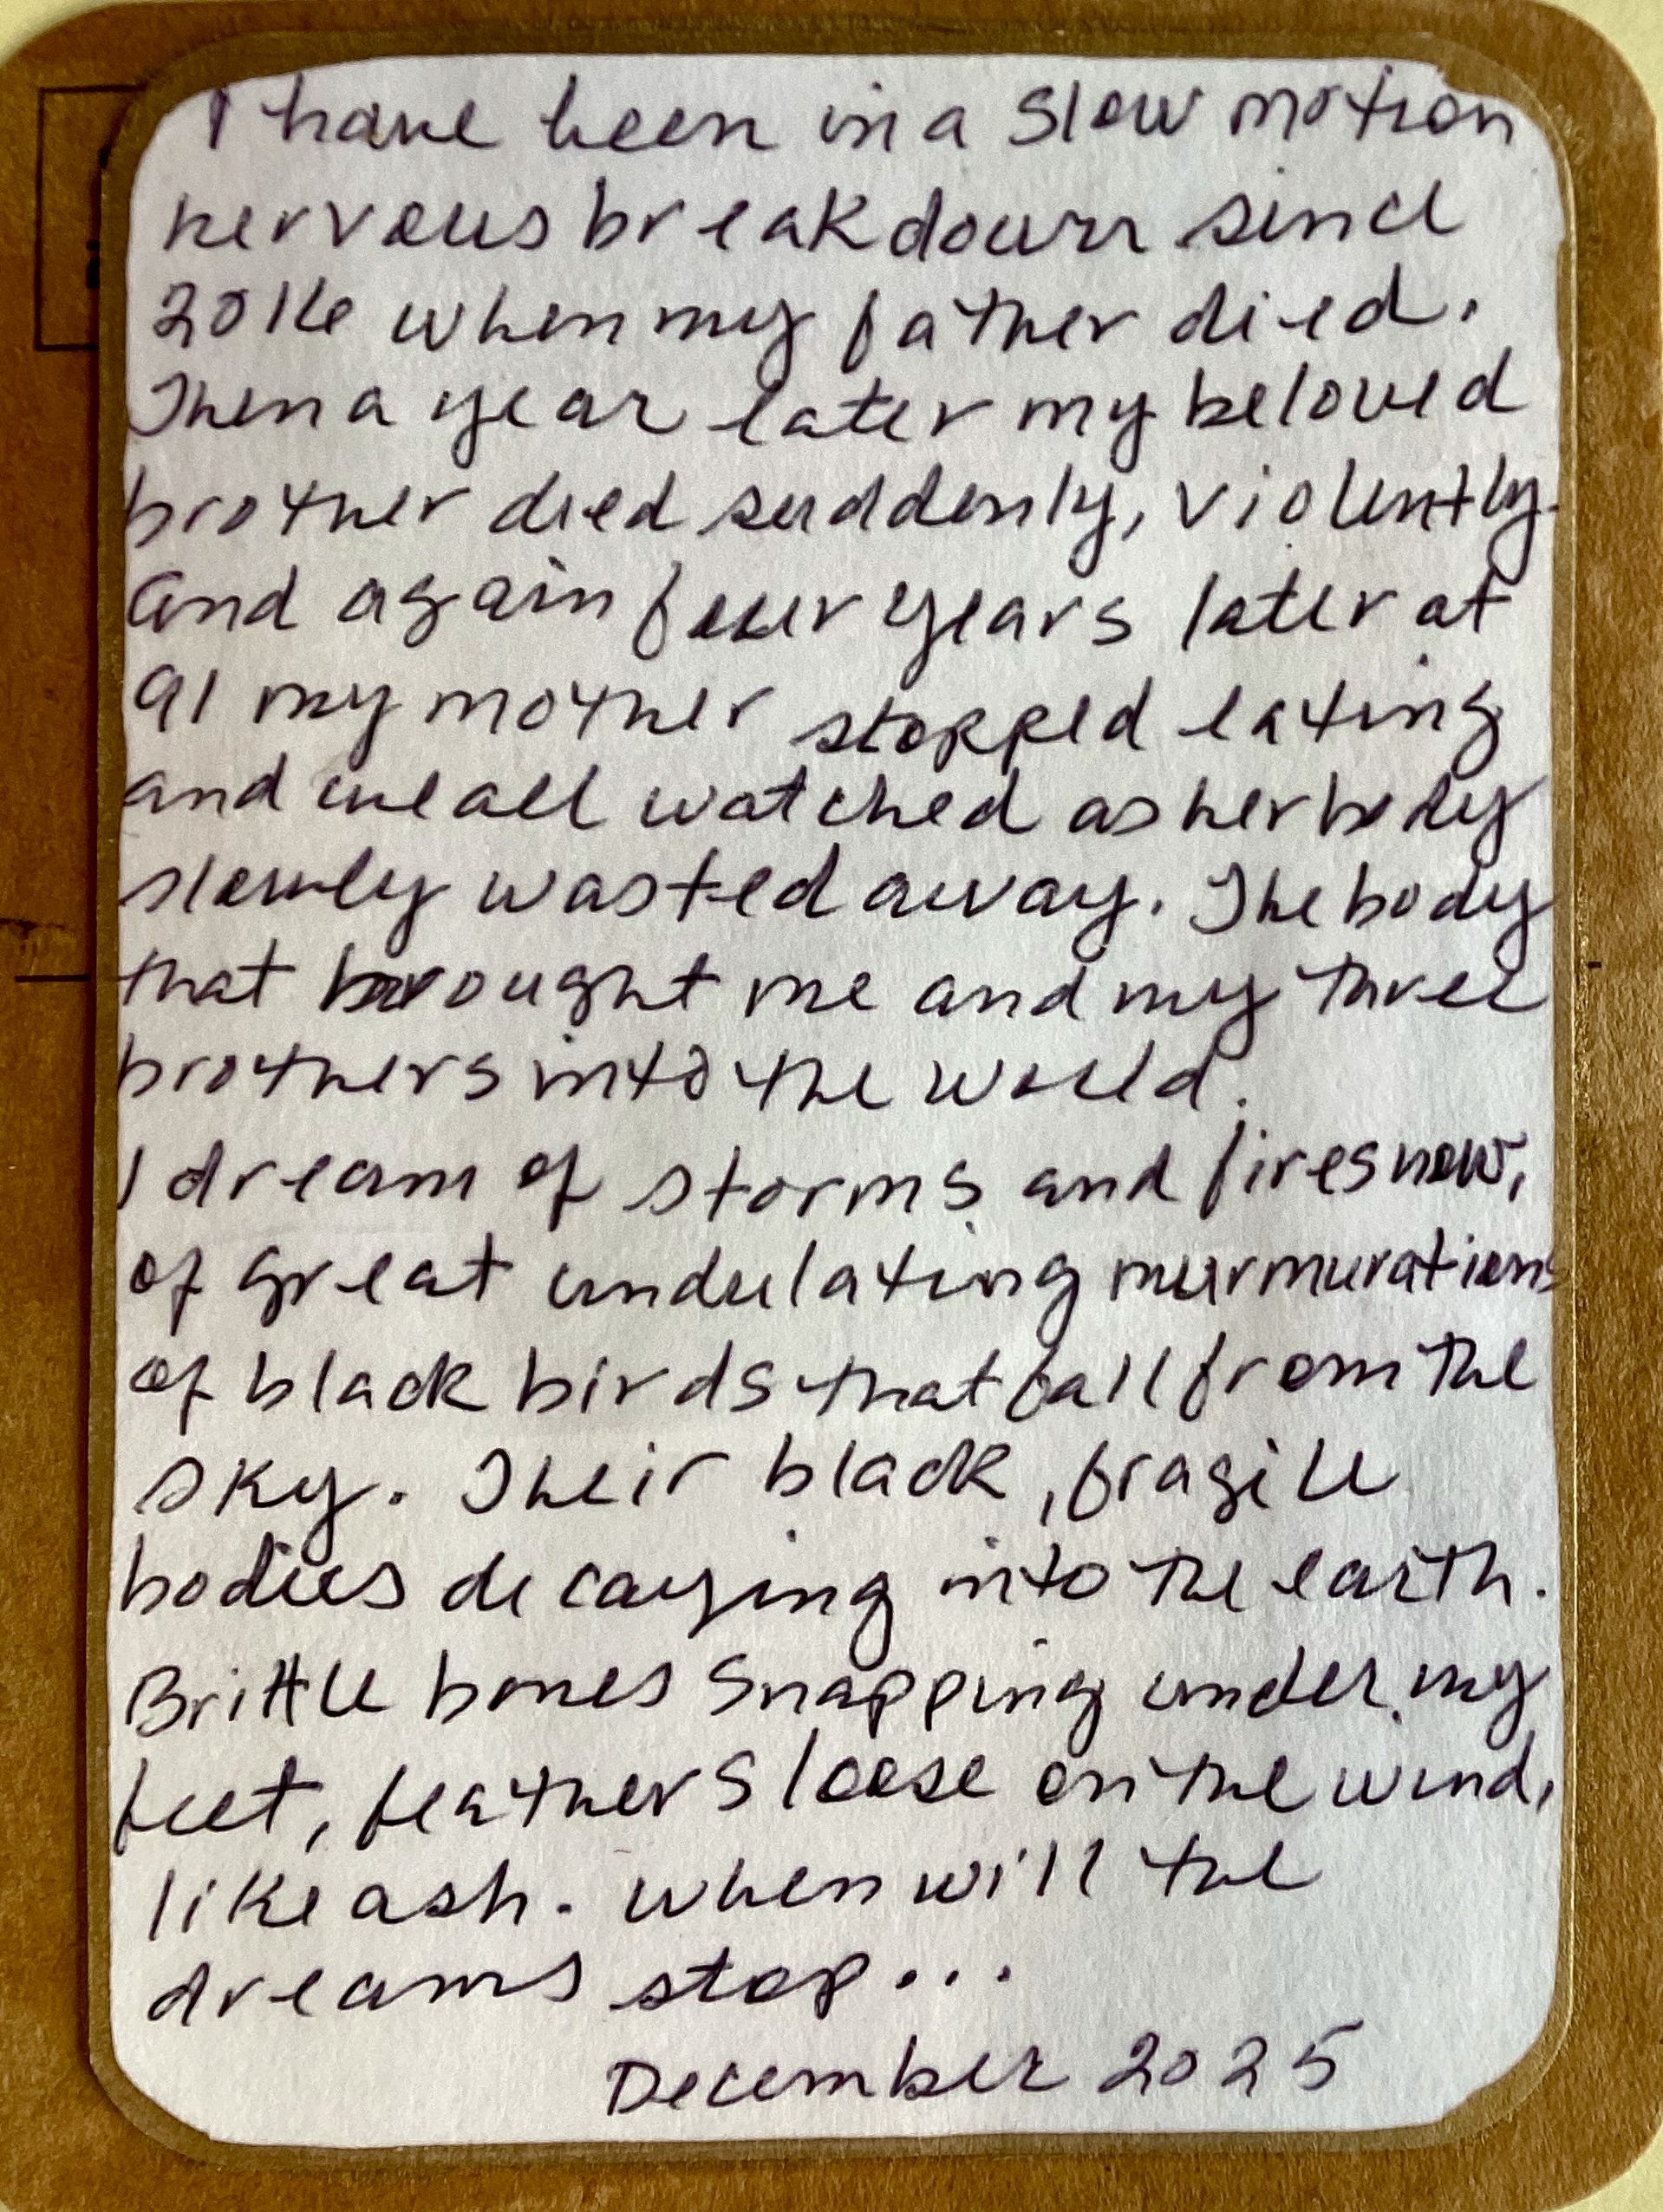 I have been in a slow motion
nervous breakdown since
2016 when my father died.
Then a year later my beloved
brother died suddenly, violently.
And again four years later at
91 my mother stopped eating
and we all watched as her body
slowly wasted away. The body
that brought me and my three
brothers into the world.
I dream of storms and fires now,
of great undulating murmurations
of black birds that fall from the
sky. Their black, fragile
bodies decaying into the earth.
Brittle bones snapping under my
feet, feathers loose on the wind,
like ash. When will the
dreams stop...
December 2025